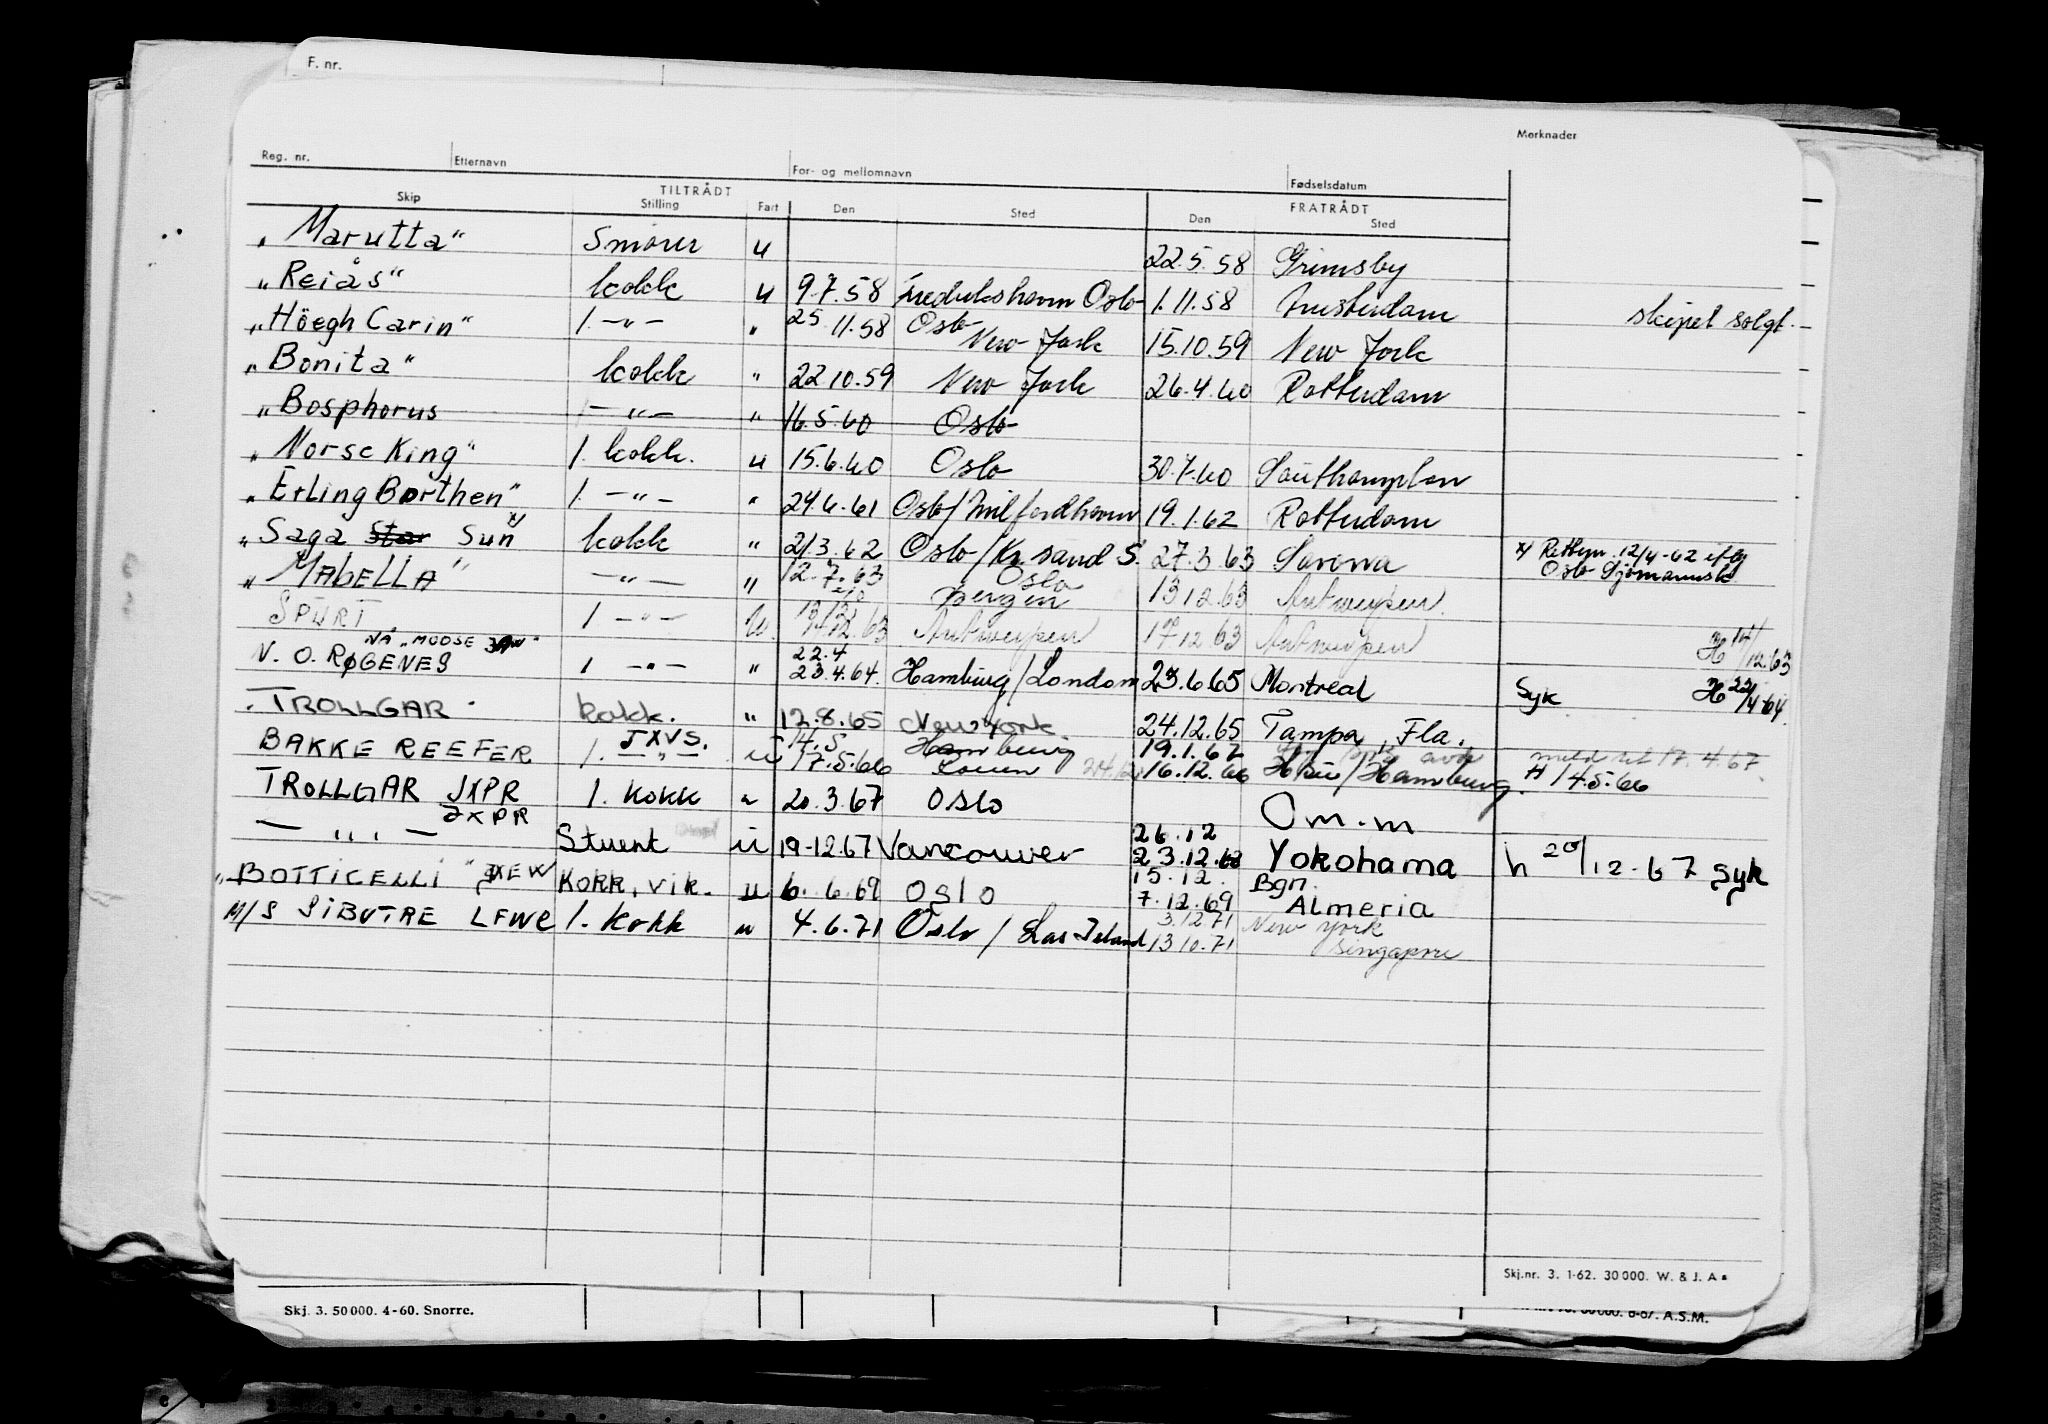 F. nr.
Merknader
Reg. nr. Etternavn For- og mellomnavn Fødselsdatum
TILTRÅDT FRATRÅDT
Skip Stilling Fart Den Sted Den Sted
„Marutta" Smører u 22.5.58 Grimsby
„Reiås" kokk u 9.7.58 Oslo 1.11.58 Amsterdam skipet solgt.
„Höegh Carin" 1. —„— „ 25.11.58 Oslo New York 15.10.59 New York
„Bonita" kokk „ 22.10.59 New York 26.4.60 Rotterdam
„Bosphorus —„— „ 16.5.60 Oslo
„Norse King" 1. kokk. u 15.6.60 Oslo 30.7.60 Southampton
„Erling Borthen" 1. —„— „ 24.6.61 Oslo/Milfordhavn 19.1.62 Rotterdam
„Saga Star Sun" x/ kokk „ 21.3.62 Oslo/Kr.sand S. 27.3.63 Savona x/ 12/4-62
Oslo
„MABELLA" —„— „ 12.7.63 Oslo Bergen 13.12.63 Antwerpen
SPURT 1 —„— u. 12.63 Antwerpen 17.12.63 Antwerpen H 17/12.63
NÅ „MOOSE
V. O. RØGENES 1 —„— „ 22.4 23.4.64. Hamburg/London 23.6.65 Montreal Syk H 22/4-64.
„TROLLGAR" kokk. „ 12.8.65 New York 24.12.65 Tampa, Fla.
BAKKE REEFER JXVS. 1. —„— u 14.5 17.5.66 Hamburg Rouen 19.1.67 16.12.66 Hamburg. 17.4.67. H 14.5.66
TROLLGAR JXPR 1. kokk „ 20.3.67 OSLO Om.m
— „ — JXPR Stuert u 19-12.67 Vancouver 26.12 23.12.68 Yokohama h 20/12-67 syk
„BOTTICELLI" JXEW KOKK, vik. u 6.6.69 OSLO 15.12. 7.12.69 Bgn. Almeria
M/S SIBOTRE LFWC 1. kokk u 4.6.71 Oslo / 3.12.71 13.10.71 New York Singapore
Skj.nr. 3. 1-62. 30 000. W. & J. A s
Skj. 3. 50 000. 4-60. Snorre.
A.S.M.